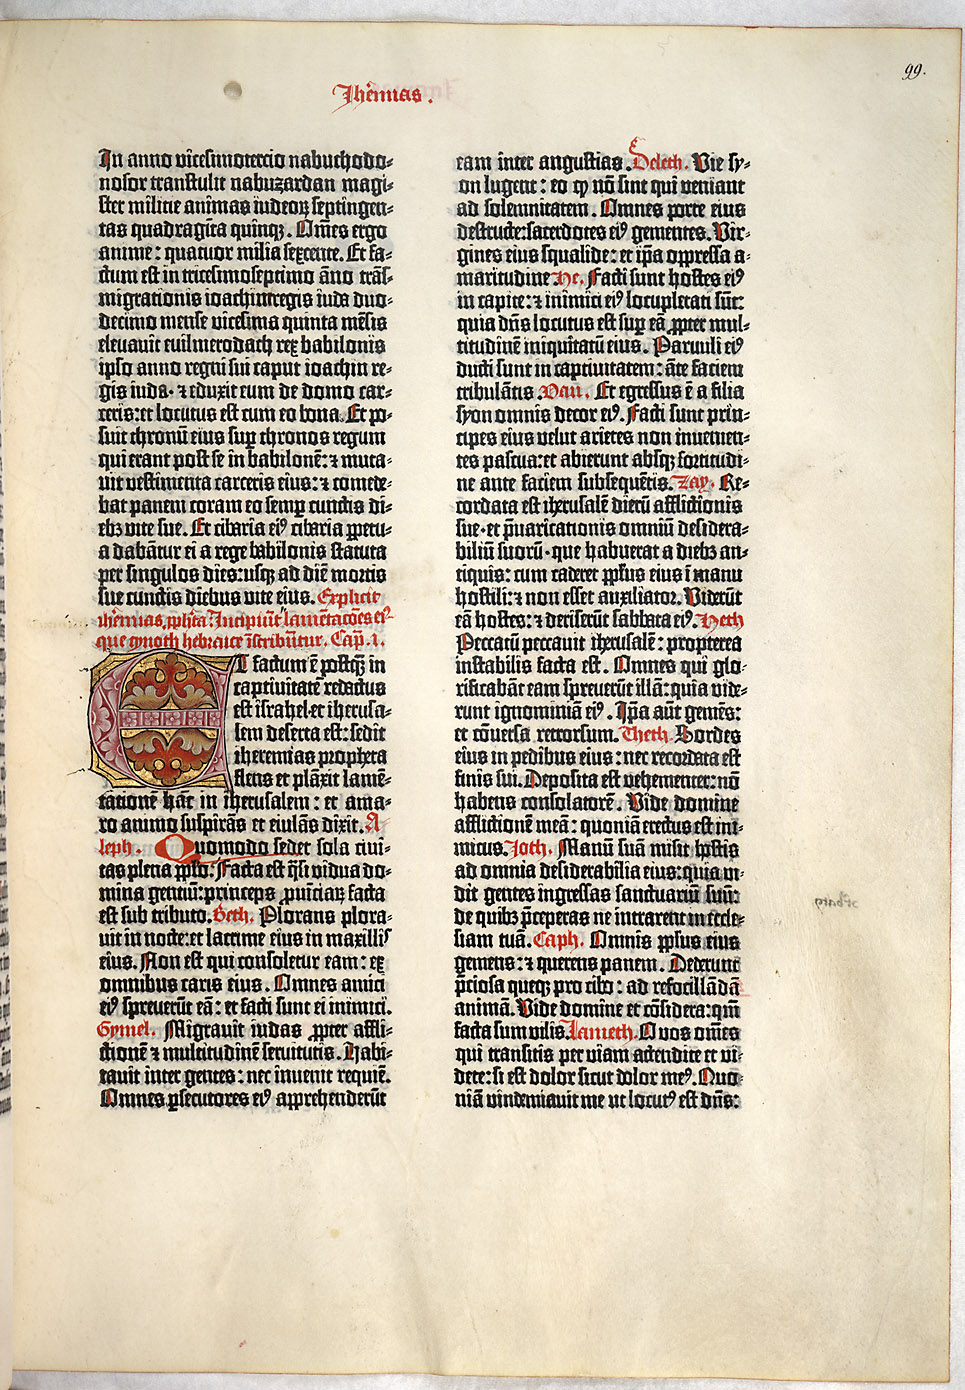 99.
Jh'emias.
In anno vicesimotercio nabuchodo⸗
nosor transtulit nabuzardan magi⸗
ster milicie animas iudeoꝝ septingen⸗
tas quadragīta quinqꝫ. Om̄es ergo
anime: quatuor milia sexcente. Et fa⸗
ctum est in tricesimoseptimo āno trās⸗
migrationis ioachin regis iuda duo⸗
decimo mense vicesima quinta mēsis
elevavit evilmerodach rex babilonis
ipso anno regni sui caput ioachin re⸗
gis iuda· ⁊ eduxit eum de domo car⸗
ceris: et locutus est cum eo bona. Et po⸗
suit thronū eius suꝑ thronos regum
qui erant post se in babilonē: ⁊ muta⸗
vit vestimenta carceris eius: ⁊ comede⸗
bat panem coram eo semꝑ cunctis di⸗
ebꝫ vite sue. Et cibaria eiꝰ cibaria ꝑpetu⸗
a dabātur ei a rege babilonis statuta
per singulos dies: usqꝫ ad diē mortis
sue cunctis diebus vite eius. Explicit
ih'emias ꝓph'ta. Incipiūt lamētacōes eiꝰ
que cynoth hebraice īscribūtur. Cap̄. 1.
ET factum ē postꝙ̄ in
captivitatē redactus
est israhel· et iherusa⸗
lem deserta est: sedit
iheremias propheta
flens et plāxit lamē⸗
tatione hāc in iherusalem: et ama⸗
ro animo suspirās et eiulās dixit. A
leph. Quomodo sedet sola civi⸗
tas plena pp̄lo: Facta est q̄si vidua do⸗
mina gentiū: princeps ꝓvinciaꝝ facta
est sub tributo. Beth. Plorans plora⸗
vit in nocte: et lacrime eius in maxillis
eius. Non est qui consoletur eam: ex
omnibus caris eius. Omnes amici
eiꝰ spreverūt eā: et facti sunt ei inimici.
Gymel. Migravit iudas ꝓpter affli⸗
ctionē ⁊ multitudinē servitutis. Habi⸗
tavit inter gentes: nec invenit requiē.
Omnes ꝑsecutores eiꝰ apprehenderūt
eam inter angustias. Deleth. Vie sy⸗
on lugent: eo ꝙ nō sint qui veniant
ad solemnitatem. Omnes porte eius
destructe: sacerdotes eiꝰ gementes. Vir⸗
gines eius squalide: et ip̄a oppressa a⸗
maritudine He. Facti sunt hostes eiꝰ
in capite: ⁊ inimici eiꝰ locupletati sūt:
quia dn̄s locutus est suꝑ eā ꝓpter mul⸗
titudinē iniquitatū eius. Parvuli eiꝰ
ducti sunt in captivitatem: āte faciem
tribulātis. Vau. Et egressus ē a filia
syon omnis decor eiꝰ. Facti sunt prin⸗
cipes eius velut arietes non invenien⸗
tes pascua: et abierunt absqꝫ fortitudi⸗
ne ante faciem subsequētis. Zay. Re⸗
cordata est iherusalē dierū afflictionis
sue· et p̄varicationis omniū desidera⸗
biliū suorū· que habuerat a diebꝫ an⸗
tiquis: cum caderet pp̄lus eius ī manu
hostili: ⁊ non esset auxiliator. Viderūt
eā hostes: ⁊ deriserūt sabbata eiꝰ. Heth
Peccatū peccavit iherusalē: propterea
instabilis facta est. Omnes qui glo⸗
rificabāt eam spreverūt illā: quia vide⸗
runt ignominiā eiꝰ. Ip̄a aūt gemēs:
et cōversa retrorsum. Theth. Sordes
eius in pedibus eius: nec recordata est
finis sui. Deposita est vehementer: nō
habens consolatorē. Vide domine
afflictionē meā: quoniā erectus est ini⸗
micus. Joth. Manū suā misit hostis
ad omnia desiderabilia eius: quia vi⸗
dit gentes ingressas sanctuariū suū:
de quibꝫ p̄ceperas ne intrarent in eccle⸗
siam tuā. Caph. Omnis pp̄lus eius
gemens: ⁊ querens panem. Dederunt
p̄ciosa queqꝫ pro cibo: ad refocillādā
animā. Vide domine et cōsidera: qm̄
facta sum vilis. Lameth. O vos om̄es
qui transitis per viam attendite et vi⸗
dete: si est dolor sicut dolor meꝰ. Quo⸗
niā vindemiavit me ut locutꝰ est dn̄s: